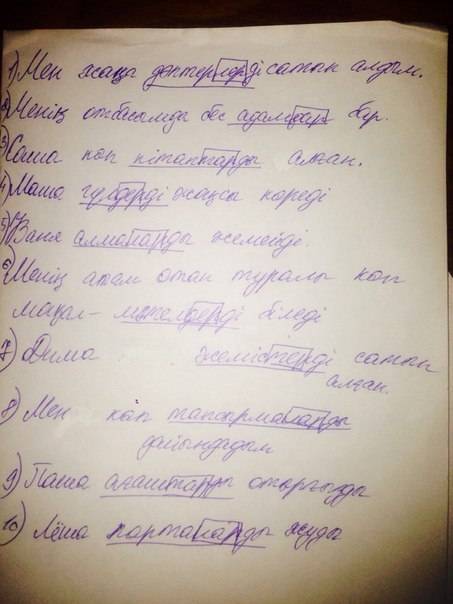 1) Мен жаңа дәптерлерді сатып алдым.
2) Менің отбасымда бес адамдар бар.
3) Саша көп кітаптарды алған.
4) Маша гүлдерді жақсы көреді
5) Ваня алмаларды жемейді.
6) Менің апам отан туралы көп
мақал-мәтелдерді біледі
7) Дима жемістерді сатып
алған.
8) Мен көп тапсырмаларды
дайындадым
9) Паша ағаштарды отырғызды
10) Лёша парталарды жуды